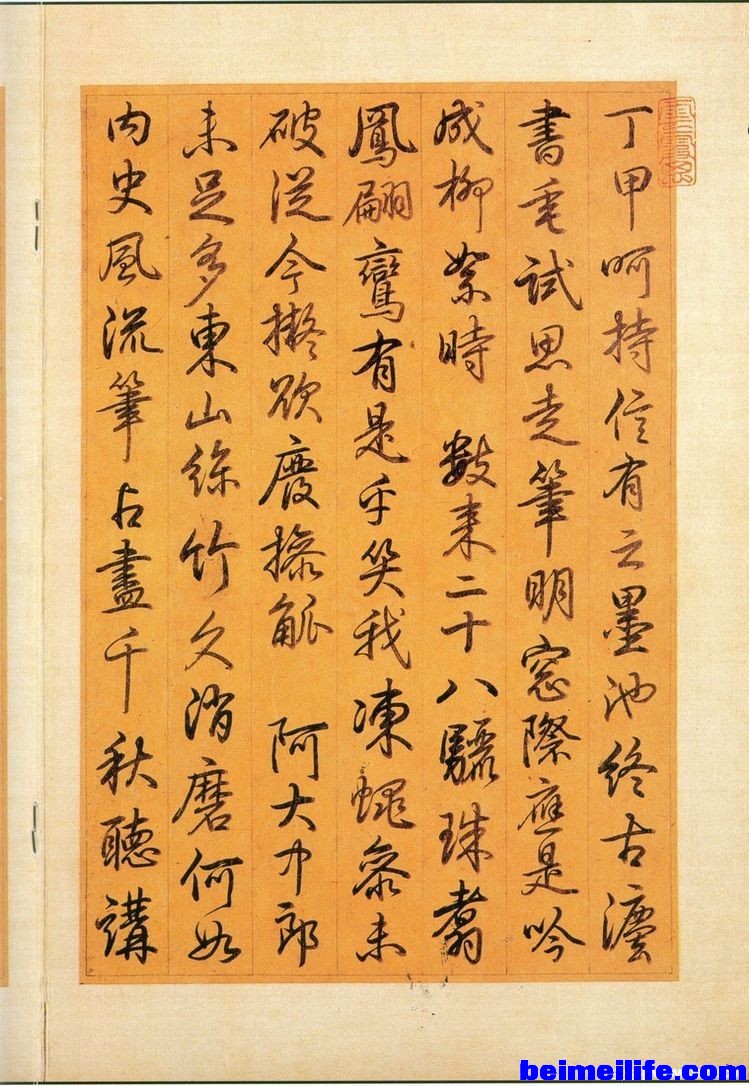 丁甲呵持信有之墨池終古灋
書垂試思走筆明窓際應是吟
成柳絮時 數來二十八驪珠翥
鳳翩鸞有是乎笑我凍蠅參未
破從今擬欲廢操觚 阿大中郎
未足多東山絲竹久消磨何如
內史風流筆占盡千秋聽講
beimeilife.com